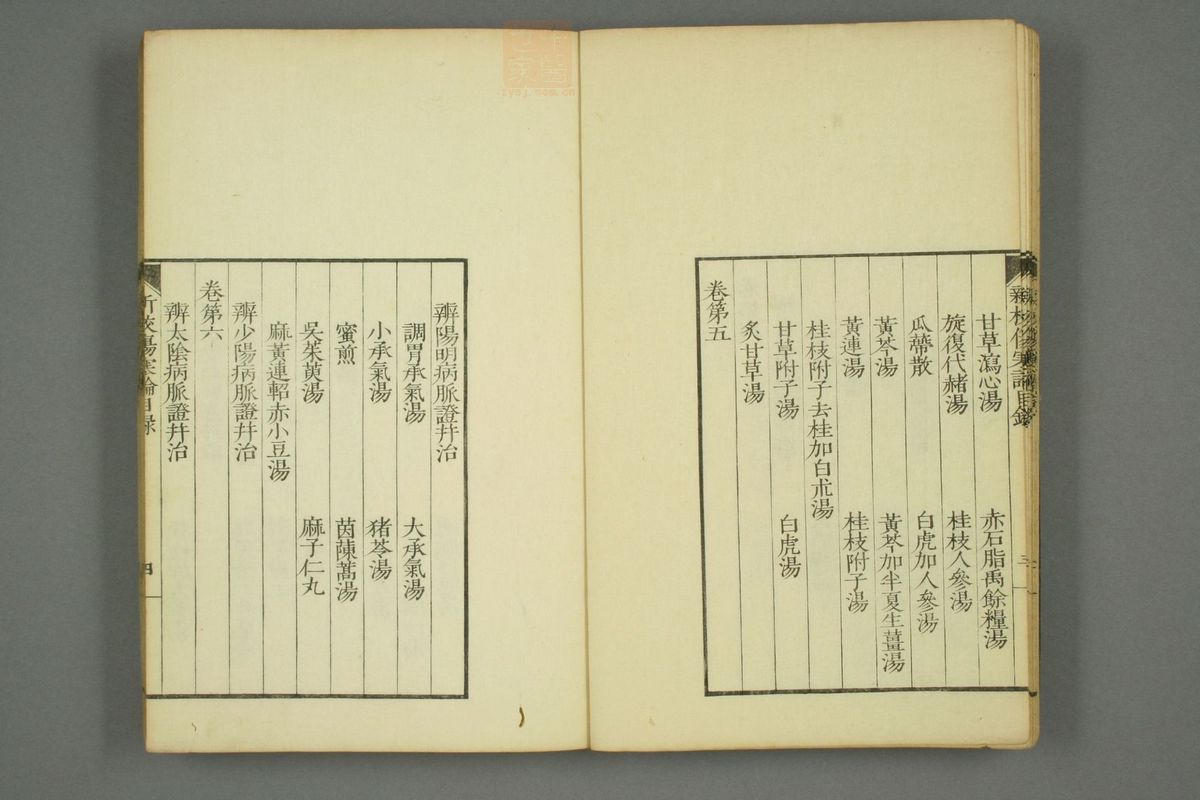 新校傷寒論目錄
甘草瀉心湯 赤石脂禹餘糧湯
旋復代赭湯 桂枝人參湯
瓜蔕散 白虎加人參湯
黃芩湯 黃芩加半夏生薑湯
黃連湯 桂枝附子湯
桂枝附子去桂加白朮湯
甘草附子湯 白虎湯
炙甘草湯
卷第五
辨陽明病脈證幷治
調胃承氣湯 大承氣湯
小承氣湯 猪苓湯
蜜煎 茵蔯蒿湯
吳茱萸湯 麻子仁丸
麻黃連軺赤小豆湯
辨少陽病脈證幷治
卷第六
辨太陰病脈證幷治
新校傷寒論目錄 四
zysj.com.cn